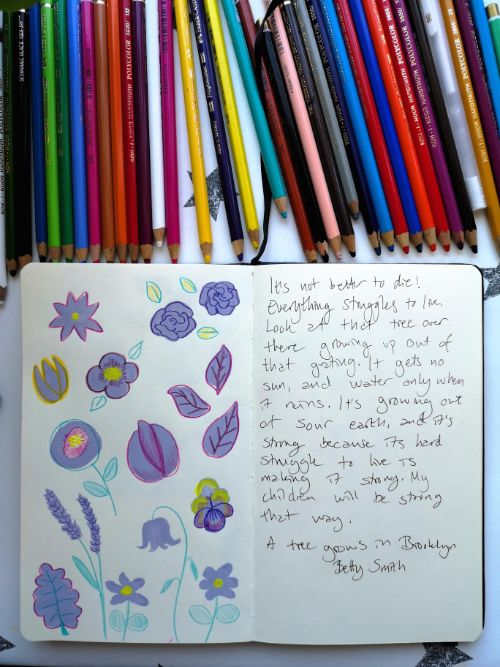 KOH-I-NOOR HARDTMUTH POLYCOLOR
It's not better to die!
Everything struggles to live.
Look at that tree over
there growing up out of
that grating. It gets no
sun, and water only when
it rains. It's growing out
of sour earth, and it's
strong because its hard
struggle to live is
making it strong. My
children will be strong
that way.
A tree grows in Brooklyn
Betty Smith